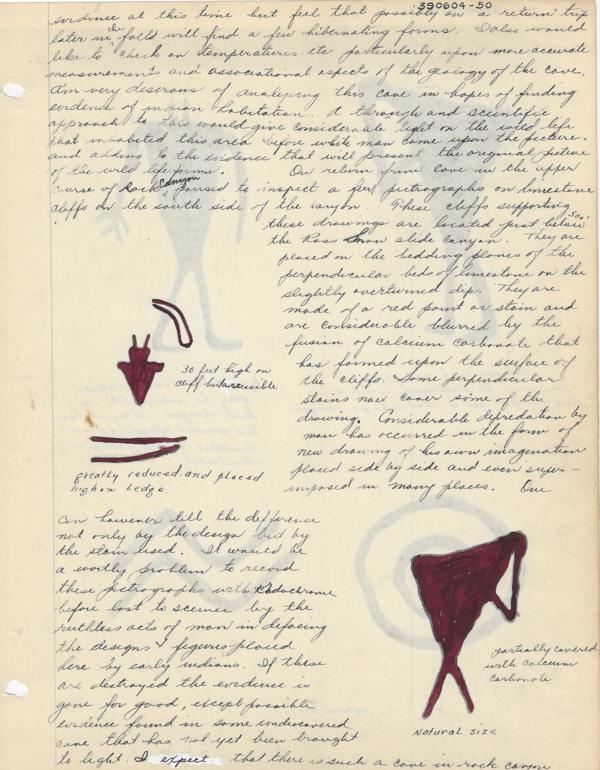 390604-50
evidence at this time but feel that possibly on a return trip
later in ^the fall will find a few hibernating forms. I also would
like to check on temperatures etc particularly upon more accurate
measurements and associational aspects of the geology of the cave.
Am very desirous of analyzing this cave in hopes of finding
evidence of indian habitation. A through and scientific
approach to this would give considerable light on the wild life
that inhabited this area before white man came upon the picture.
and adding to the evidence that will present the original picture
of the wild life forms. On return from cave in the upper
curse of Rock Canyon paused to inspect a few pictrographs on limestone
cliffs on the south side of the canyon. These cliffs supporting
these drawings are located just below 500'
the Ross Snow slide canyon. They are
placed on the bedding planes of the
perpendicular beds of limestone on the
slightly overturned dip. They are
made of a red paint or stain and
are considerable blurred by the
fusion of calcium carbonate that
has formed upon the surface of
the cliffs. Some perpendicular
stains now cover some of the
drawing. Considerable depredation by
man has occurred in the form of
new drawing of his own imagination
placed side by side and even super-
imposed in many places. One
30 feet high on
cliff but accessible
greatly reduced and placed
high on ledge
can however tell the difference
not only by the design but by
the stain used. It would be
a worthy problem to record
these pictrographs with Kodachrome
before lost to science by the
ruthless acts of man in defacing
the designs & figures placed
here by early indians. If these
are destroyed the evidence is
gone for good, except possible
evidence found in some undiscovered
cave that has not yet been brought
to light. I expect that there is such a cave in rock canyon.
partially covered
with calcium
carbonate
Natural size